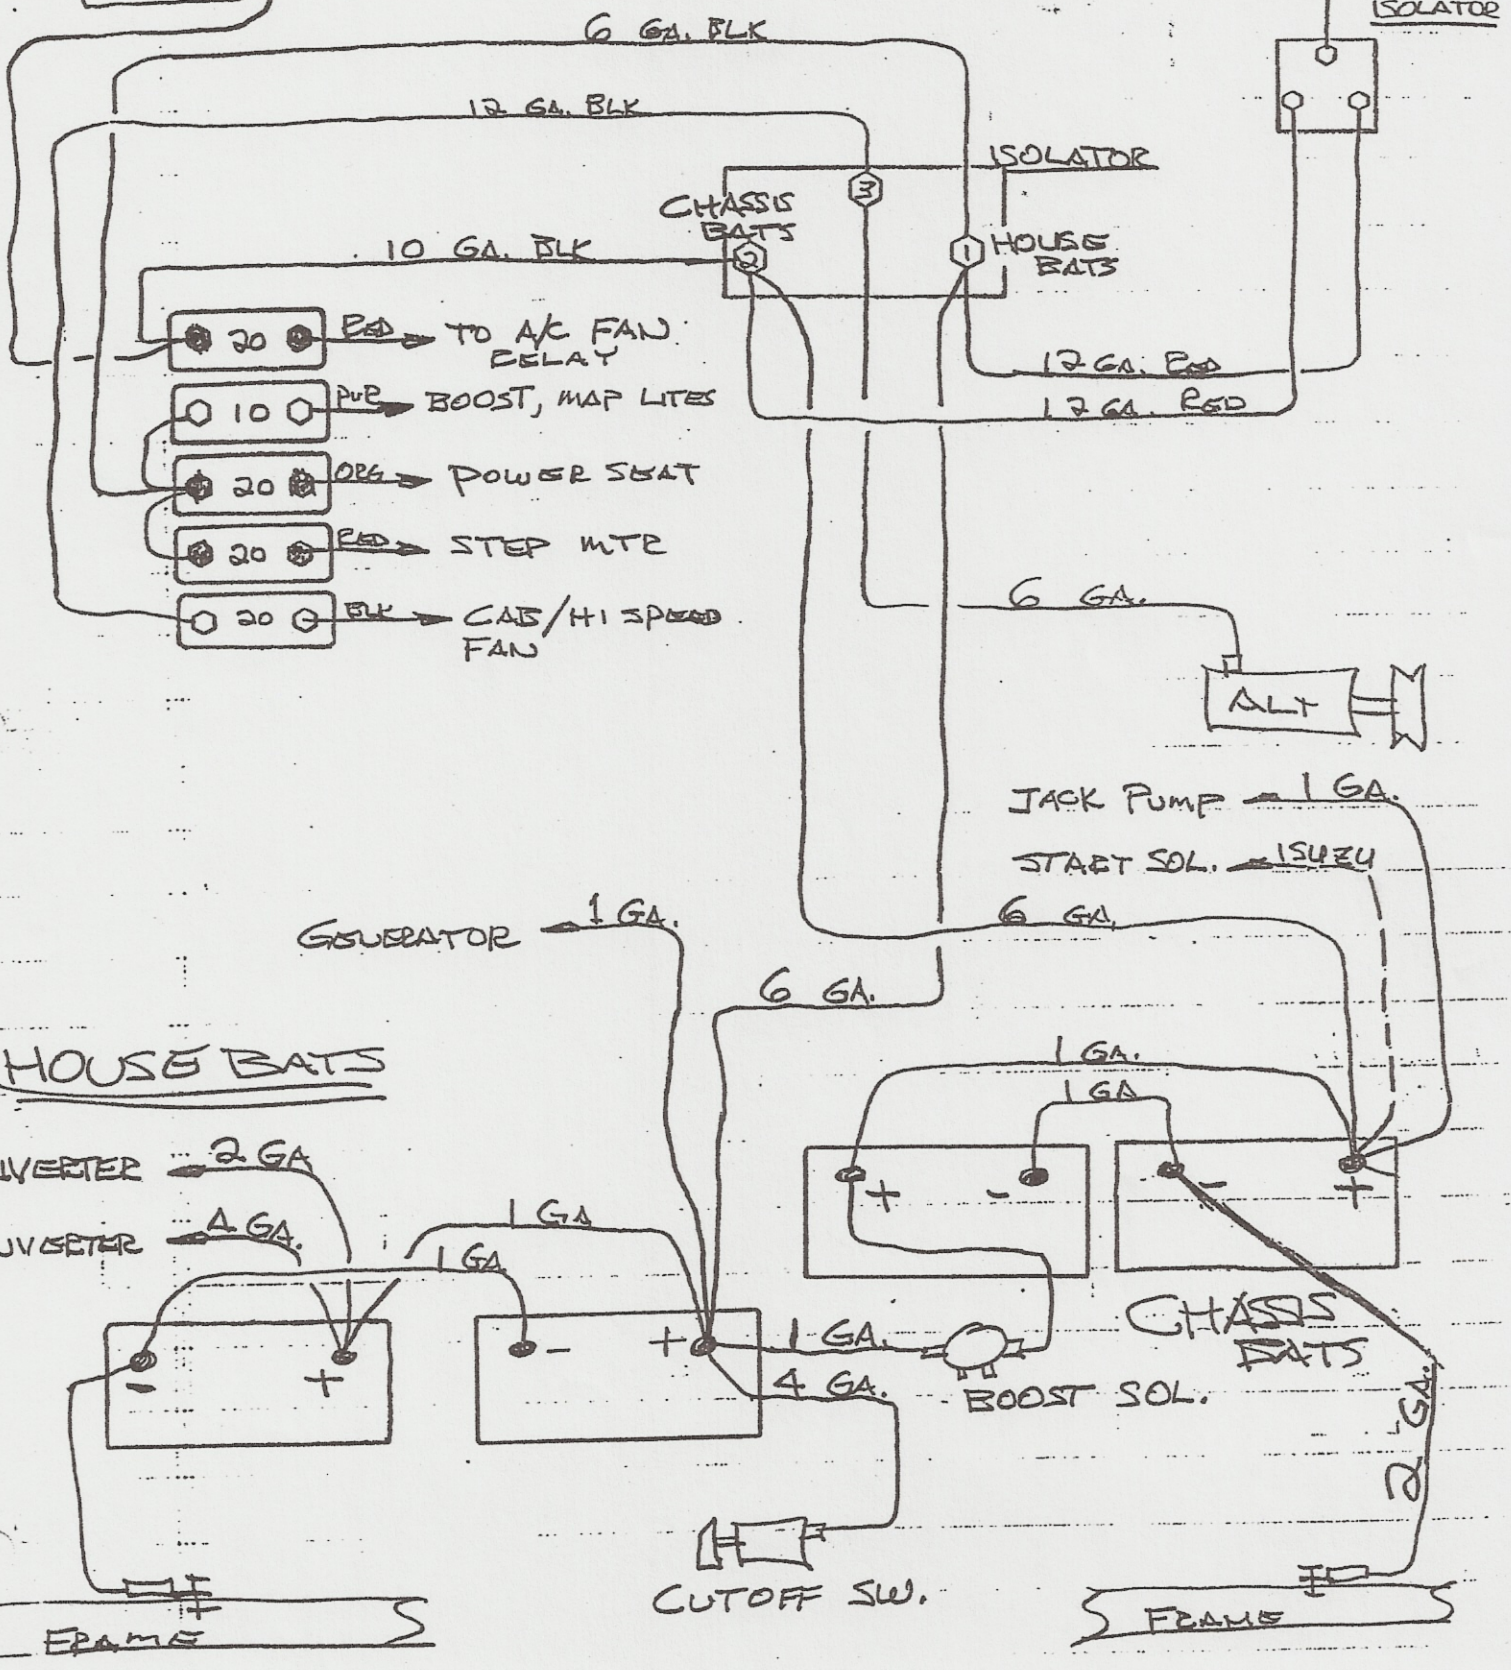 ISOLATOR
6 GA. BLK
12 GA. BLK
ISOLATOR
3
CHASSIS
BATS
2
1
HOUSE
BATS
10 GA. BLK
20
RED
TO A/C FAN
RELAY
10
PUR
BOOST, MAP LITES
20
ORG
POWER SEAT
20
RED
STEP MTR
20
BLK
CAB/HI SPEED
FAN
12 GA. RED
12 GA. RED
6 GA.
ALT
JACK PUMP
1 GA.
START SOL.
ISUZU
GENERATOR
1 GA.
6 GA.
6 GA.
HOUSE BATS
1 GA.
1 GA
VERTER
2 GA
VERTER
4 GA.
1 GA
1 GA
+
-
-
+
-
+
-
+
1 GA.
4 GA.
BOOST SOL.
CHASSIS
BATS
2 GA.
CUTOFF SW.
FRAME
FRAME